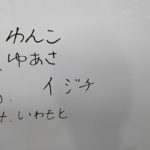 わんこ
ゆあさ
イジチ
いわもと